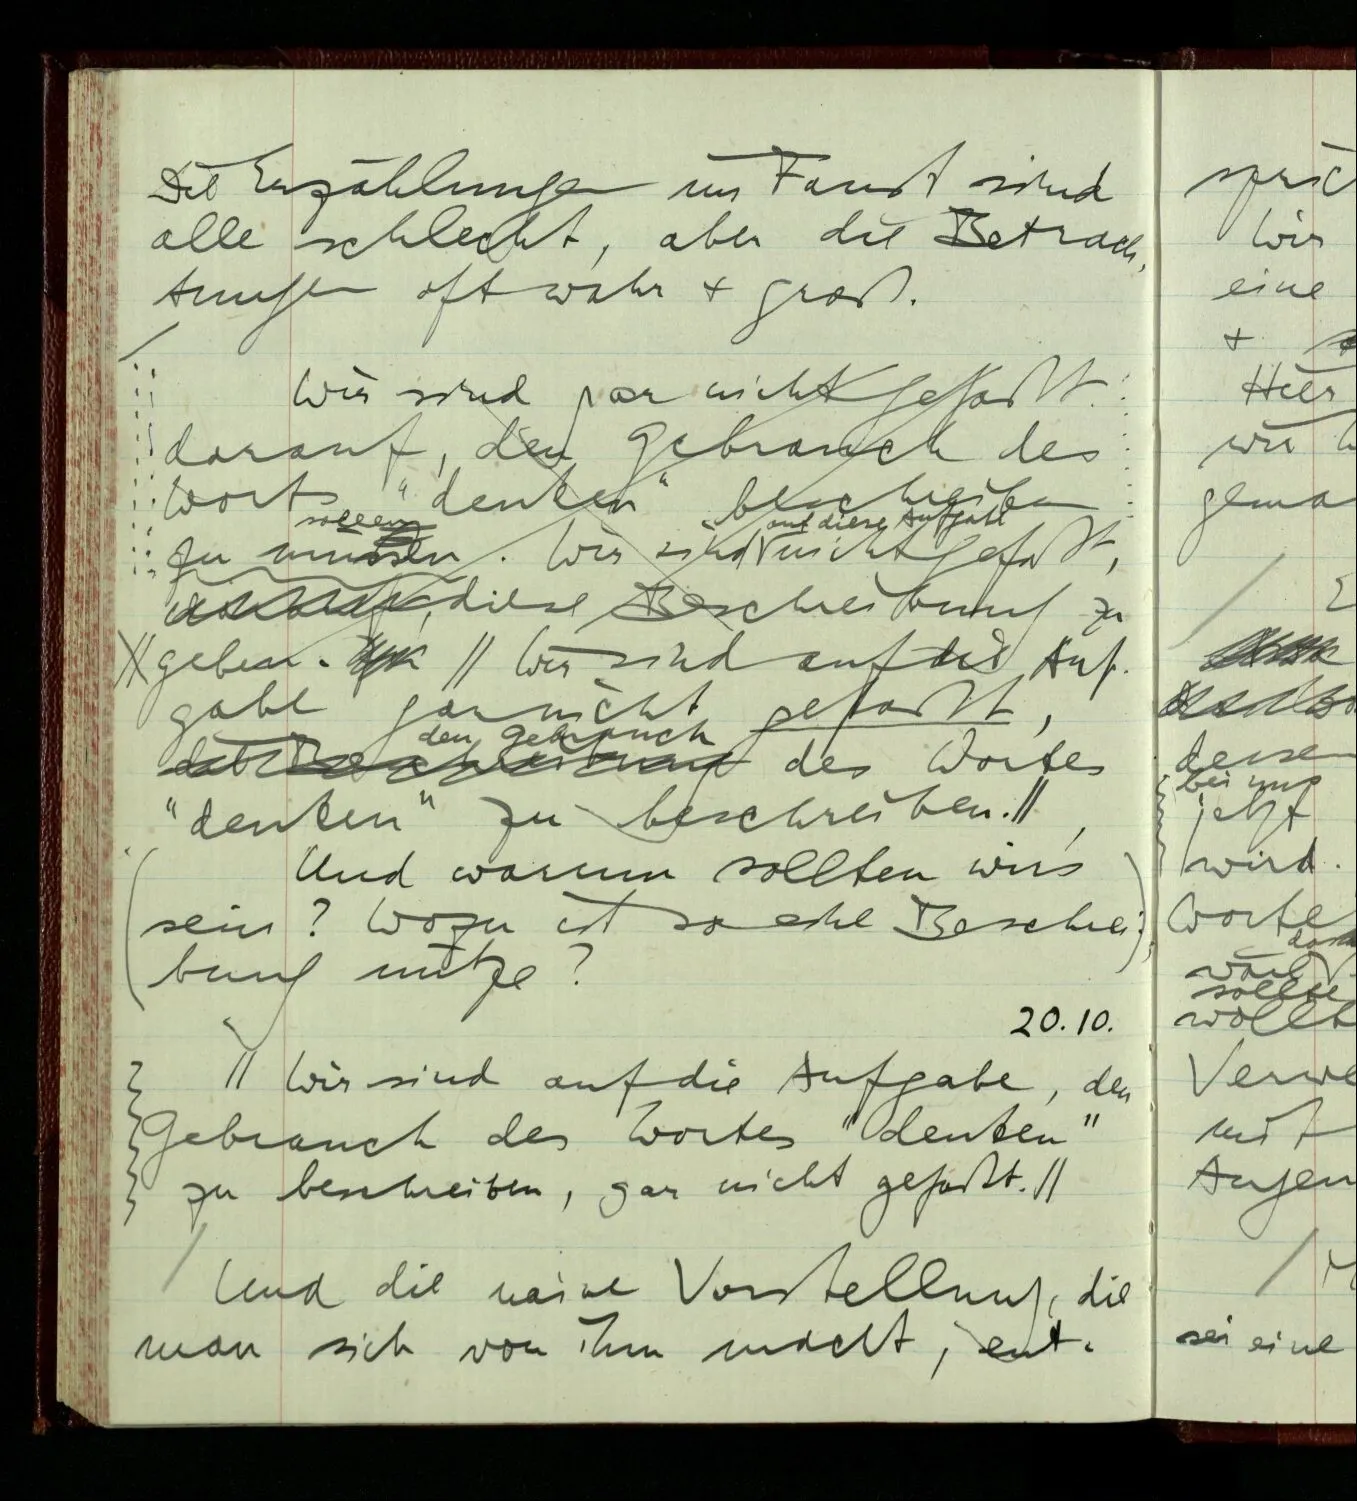 Die Erzählungen im Faust sind
alle schlecht, aber die Betrach-
tungen oft wahr + groß.
Wir sind gar nicht gefaßt
darauf, den Gebrauch des
Worts "denken" beschreiben
sollen
zu müssen. Wir sind nicht gefaßt,
auf diese Aufgabe
darauf, diese Beschreibung zu
geben. // Wir sind auf die Auf-
gabe gar nicht gefaßt,
den Gebrauch
die Beschreibung des Wortes
"denken" zu beschreiben. //
Und warum sollten wir's
sein? Wozu ist so eine Beschrei-
bung nütze?
20.10.
// Wir sind auf die Aufgabe, den
Gebrauch des Wortes "denken"
zu beschreiben, gar nicht gefaßt. //
Und die naive Vorstellung, die
man sich von ihm macht, ent-
Wir
eine
+
Hier
jetzt
wird.
Worte
sollte
mit
sei eine